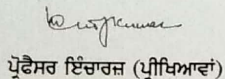 ਪ੍ਰੋਫੈਸਰ ਇੰਚਾਰਜ਼ (ਪ੍ਰੀਖਿਆਵਾਂ)